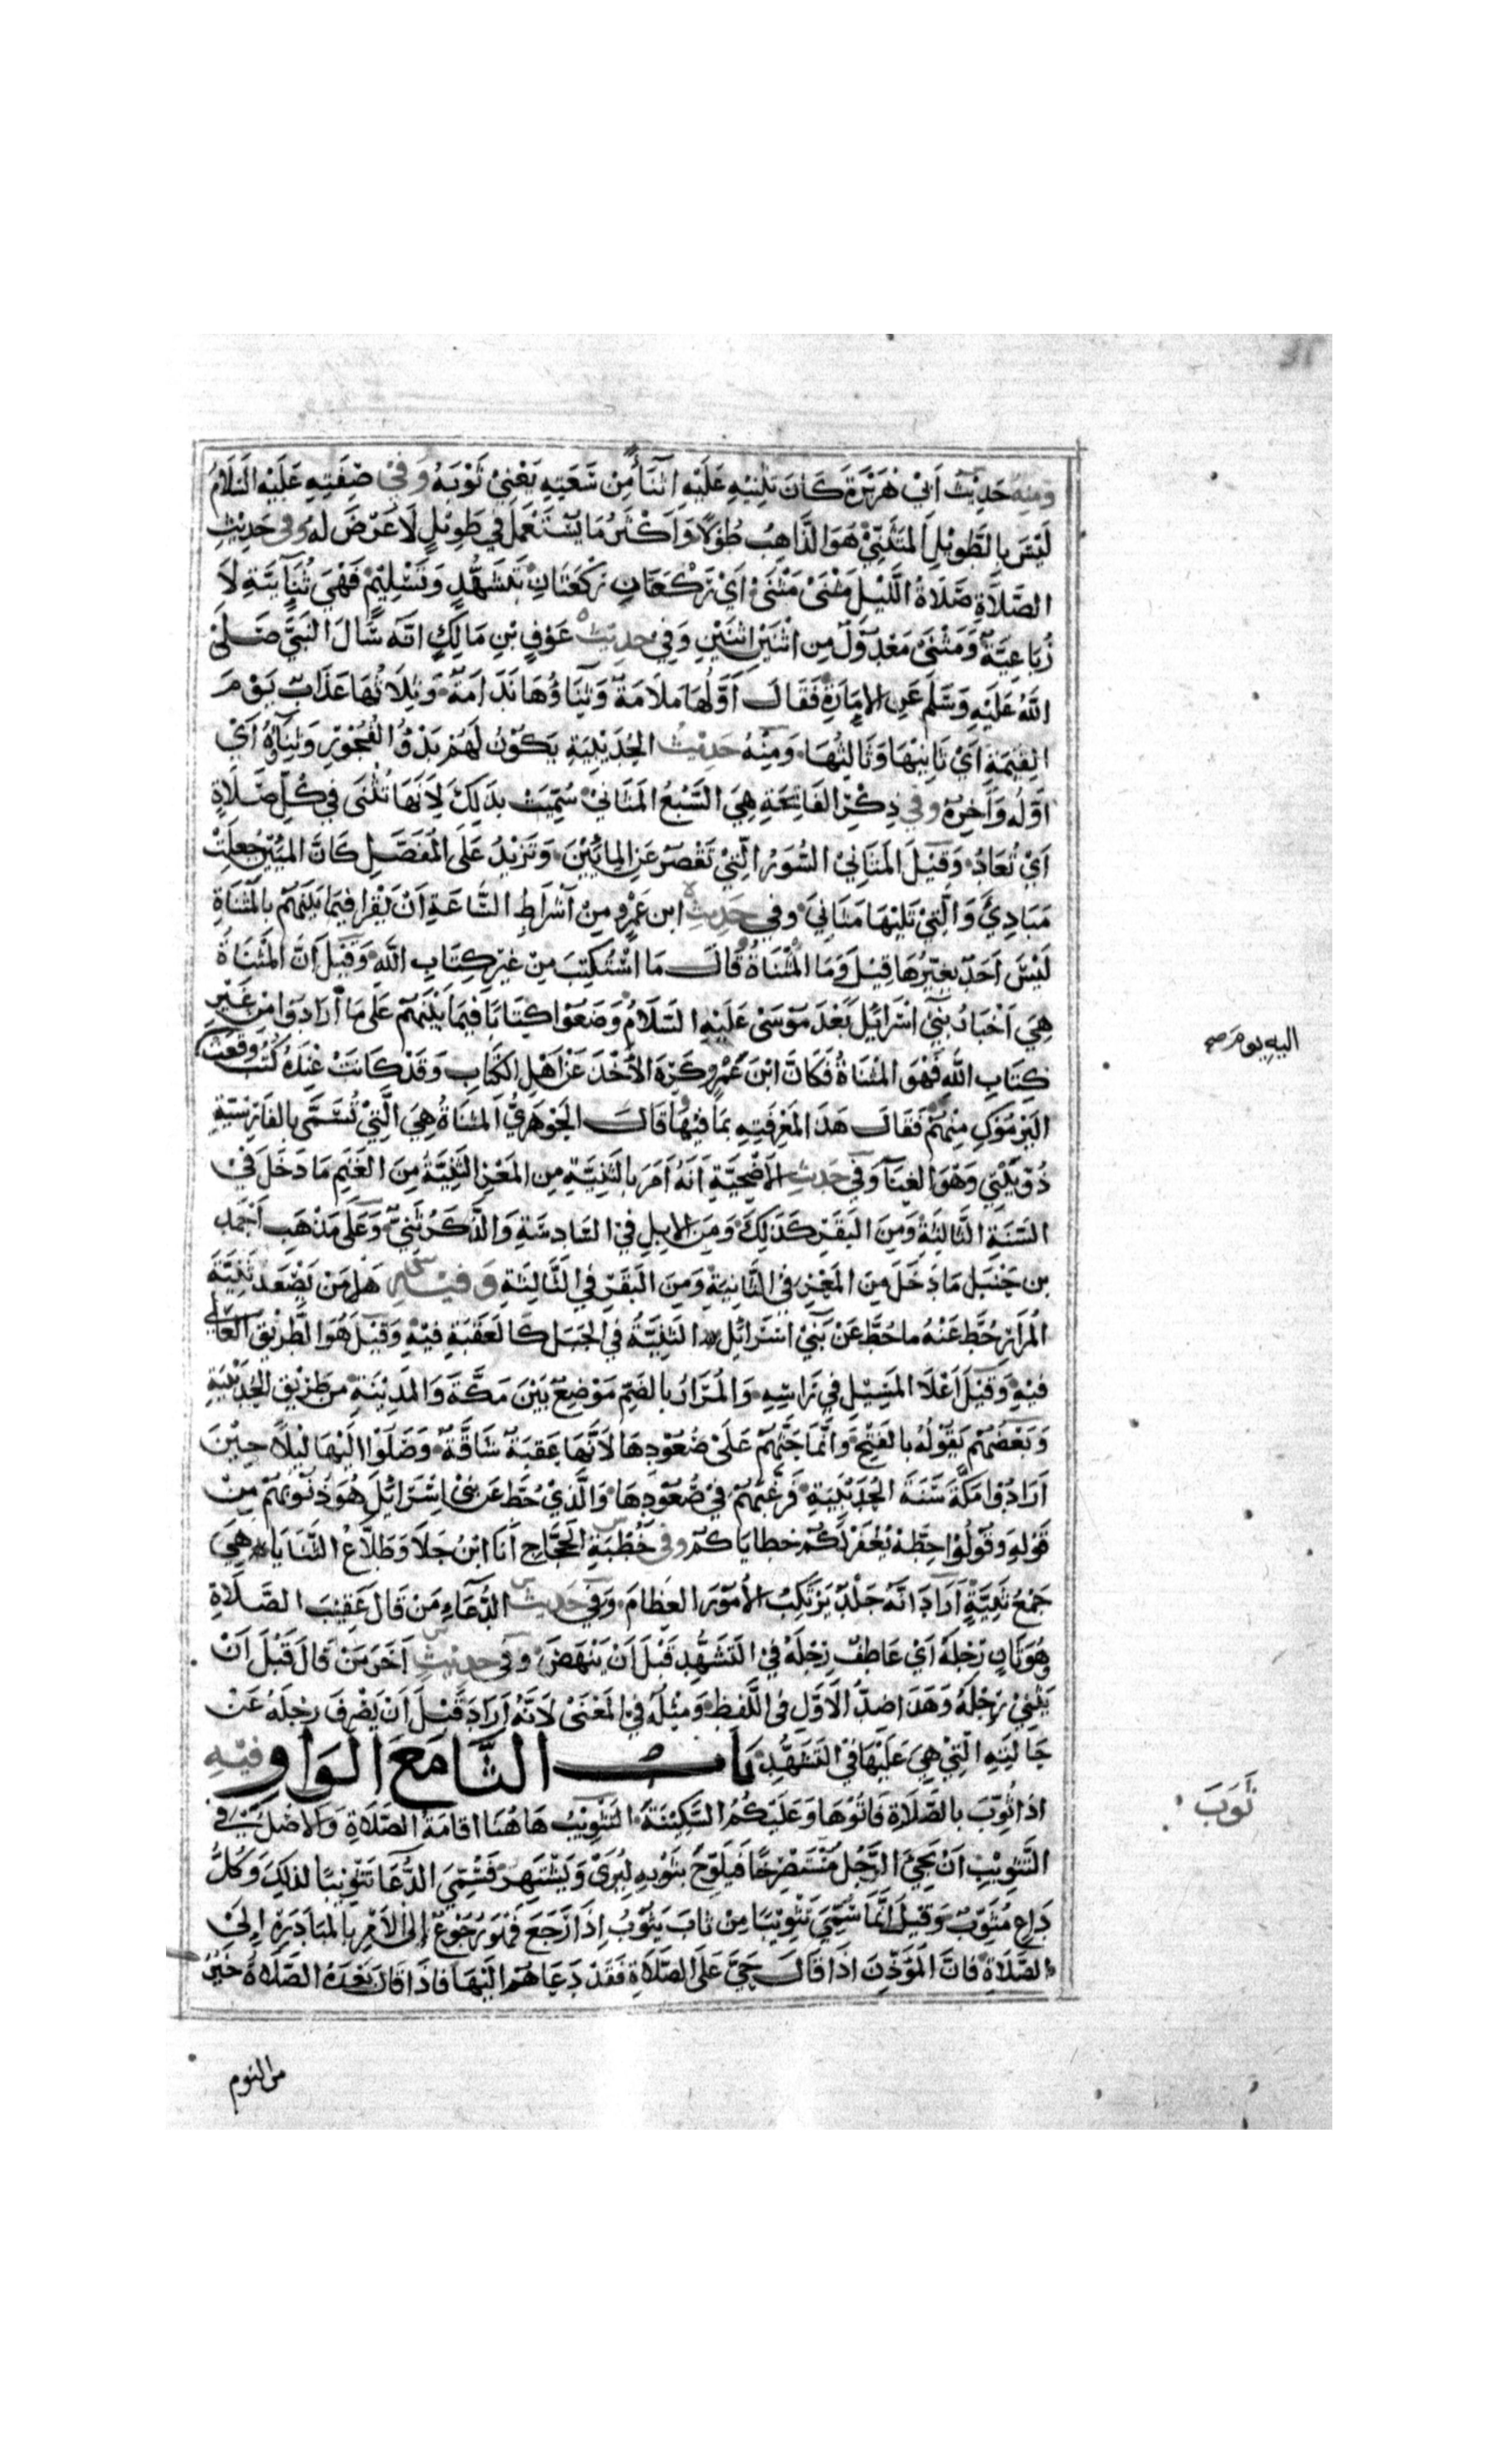 ومنه حديث أبي هريرة كان يثنيه عليه اثناء من سعته يعني ثوبه وفي صفته عليه السلام
ليس بالطويل المتثني هو الذاهب طولا وأكثر ما يستعمل في طويل لا عرض له وفي حديث
الصلاة صلاة الليل مثنى مثنى أي ركعتان ركعتان بتشهد وتسليم فهي ثنائية لا
رباعية ومثنى معدول من اثنين اثنين وفي حديث عوف بن مالك انه سأل النبي صلى
الله عليه وسلم عن الإمارة فقال أولها ملامة وثناؤها ندامة وثلاثها عذاب يوم
القيمة أي ثانيها وثالثها ومنه حديث الحديبية يكون لهم بدؤ الفجور وثناؤه أي
أوله وآخره وفي ذكر الفاتحة هي السبع المثاني سميت بذلك لأنها تثنى في كل صلاة
أي تعاد وقيل المثاني السور التي تقصر عن المايين وتزيد على المفصل كان المئين جعلت
مبادي والتي تليها مثاني وفي حديث ابن عمرو من أشراط الساعة ان يقرا فيما بينهم بالمثناة
ليس أحد يغيرها قيل وما المثناة قال ما استكتب من غير كتاب الله وقيل ان المثناة
هي أن أحبار بني اسرائيل بعد موسى عليه السلام وضعوا كتابا فيما بينهم على ما أرادوا من غير
كتاب الله فهو المثناة فكان ابن عمرو كره الأخذ عن اهل الكتاب وقد كانت عنده كتب وقعت
اليه يوم صح
اليرموك منهم فقال هذا لمعرفته بما فيها قال الجوهري المثناة هي التي تسمى بالفارسية
ذو بيتي وهو الغنا وفي حديث الأضحية أنه أمر بالثنية من المعز الثنية من الغنم ما دخل في
السنة الثالثة ومن البقر كذلك ومن الابل في السادسة والذكر ثني وعلى مذهب احمد
بن حنبل ما دخل من المعز في الثانية ومن البقر في الثالثة وفيه من يصعد ثنية
المرار حط عنه ما حط عن بني اسرائيل الثنية في الجبل كالعقبة فيه وقيل هو الطريق العالي
فيه وقيل أعلا المسيل في راسه والمرار بالضم موضع بين مكة والمدينة من طريق الحديبية
وبعضهم يقوله بالفتح وانما حثهم على صعودها لأنها عقبة شاقة وصلوا اليها ليلا حين
أرادوا مكة سنة الحديبية فرغبهم في صعودها والذي حط عن بني اسرائيل هو ذنوبهم من
قوله وقولوا حطة نغفر لكم خطاياكم وفي خطبة الحجاج أنا ابن جلا وطلاع الثنايا هي
جمع ثنية أراد انه جلد يرتكب الأمور العظام وفي حديث الدعاء من قال عقيب الصلاة
وهو ثان رجله أي عاطف رجله في التشهد قبل ان ينهض وفي حديث اخر من قال قبل ان
يثني رجله وهذا ضد الأول في اللفظ ومثله في المعنى لانه أراد قبل أن يصرف رجله عن
حالته التي هي عليها في التشهد باب الثا مع الواو فيه
ثوب
اذا ثوب بالصلاة فاتوها وعليكم السكينة التثويب هاهنا اقامة الصلاة والاصل في
التثويب ان يجئ الرجل مستصرخا فيلوح بثوبه ليرى ويشتهر فسمي الدعا تثويبا لذلك وكل
داع مثوب وقيل إنما سمي تثويبا من ثاب يثوب اذا رجع فهو رجوع إلى الأمر بالمبادرة إلى
الصلاة فان المؤذن اذا قال حي على الصلاة فقد دعاهم اليها فاذا قال بعده الصلاة خير
من النوم